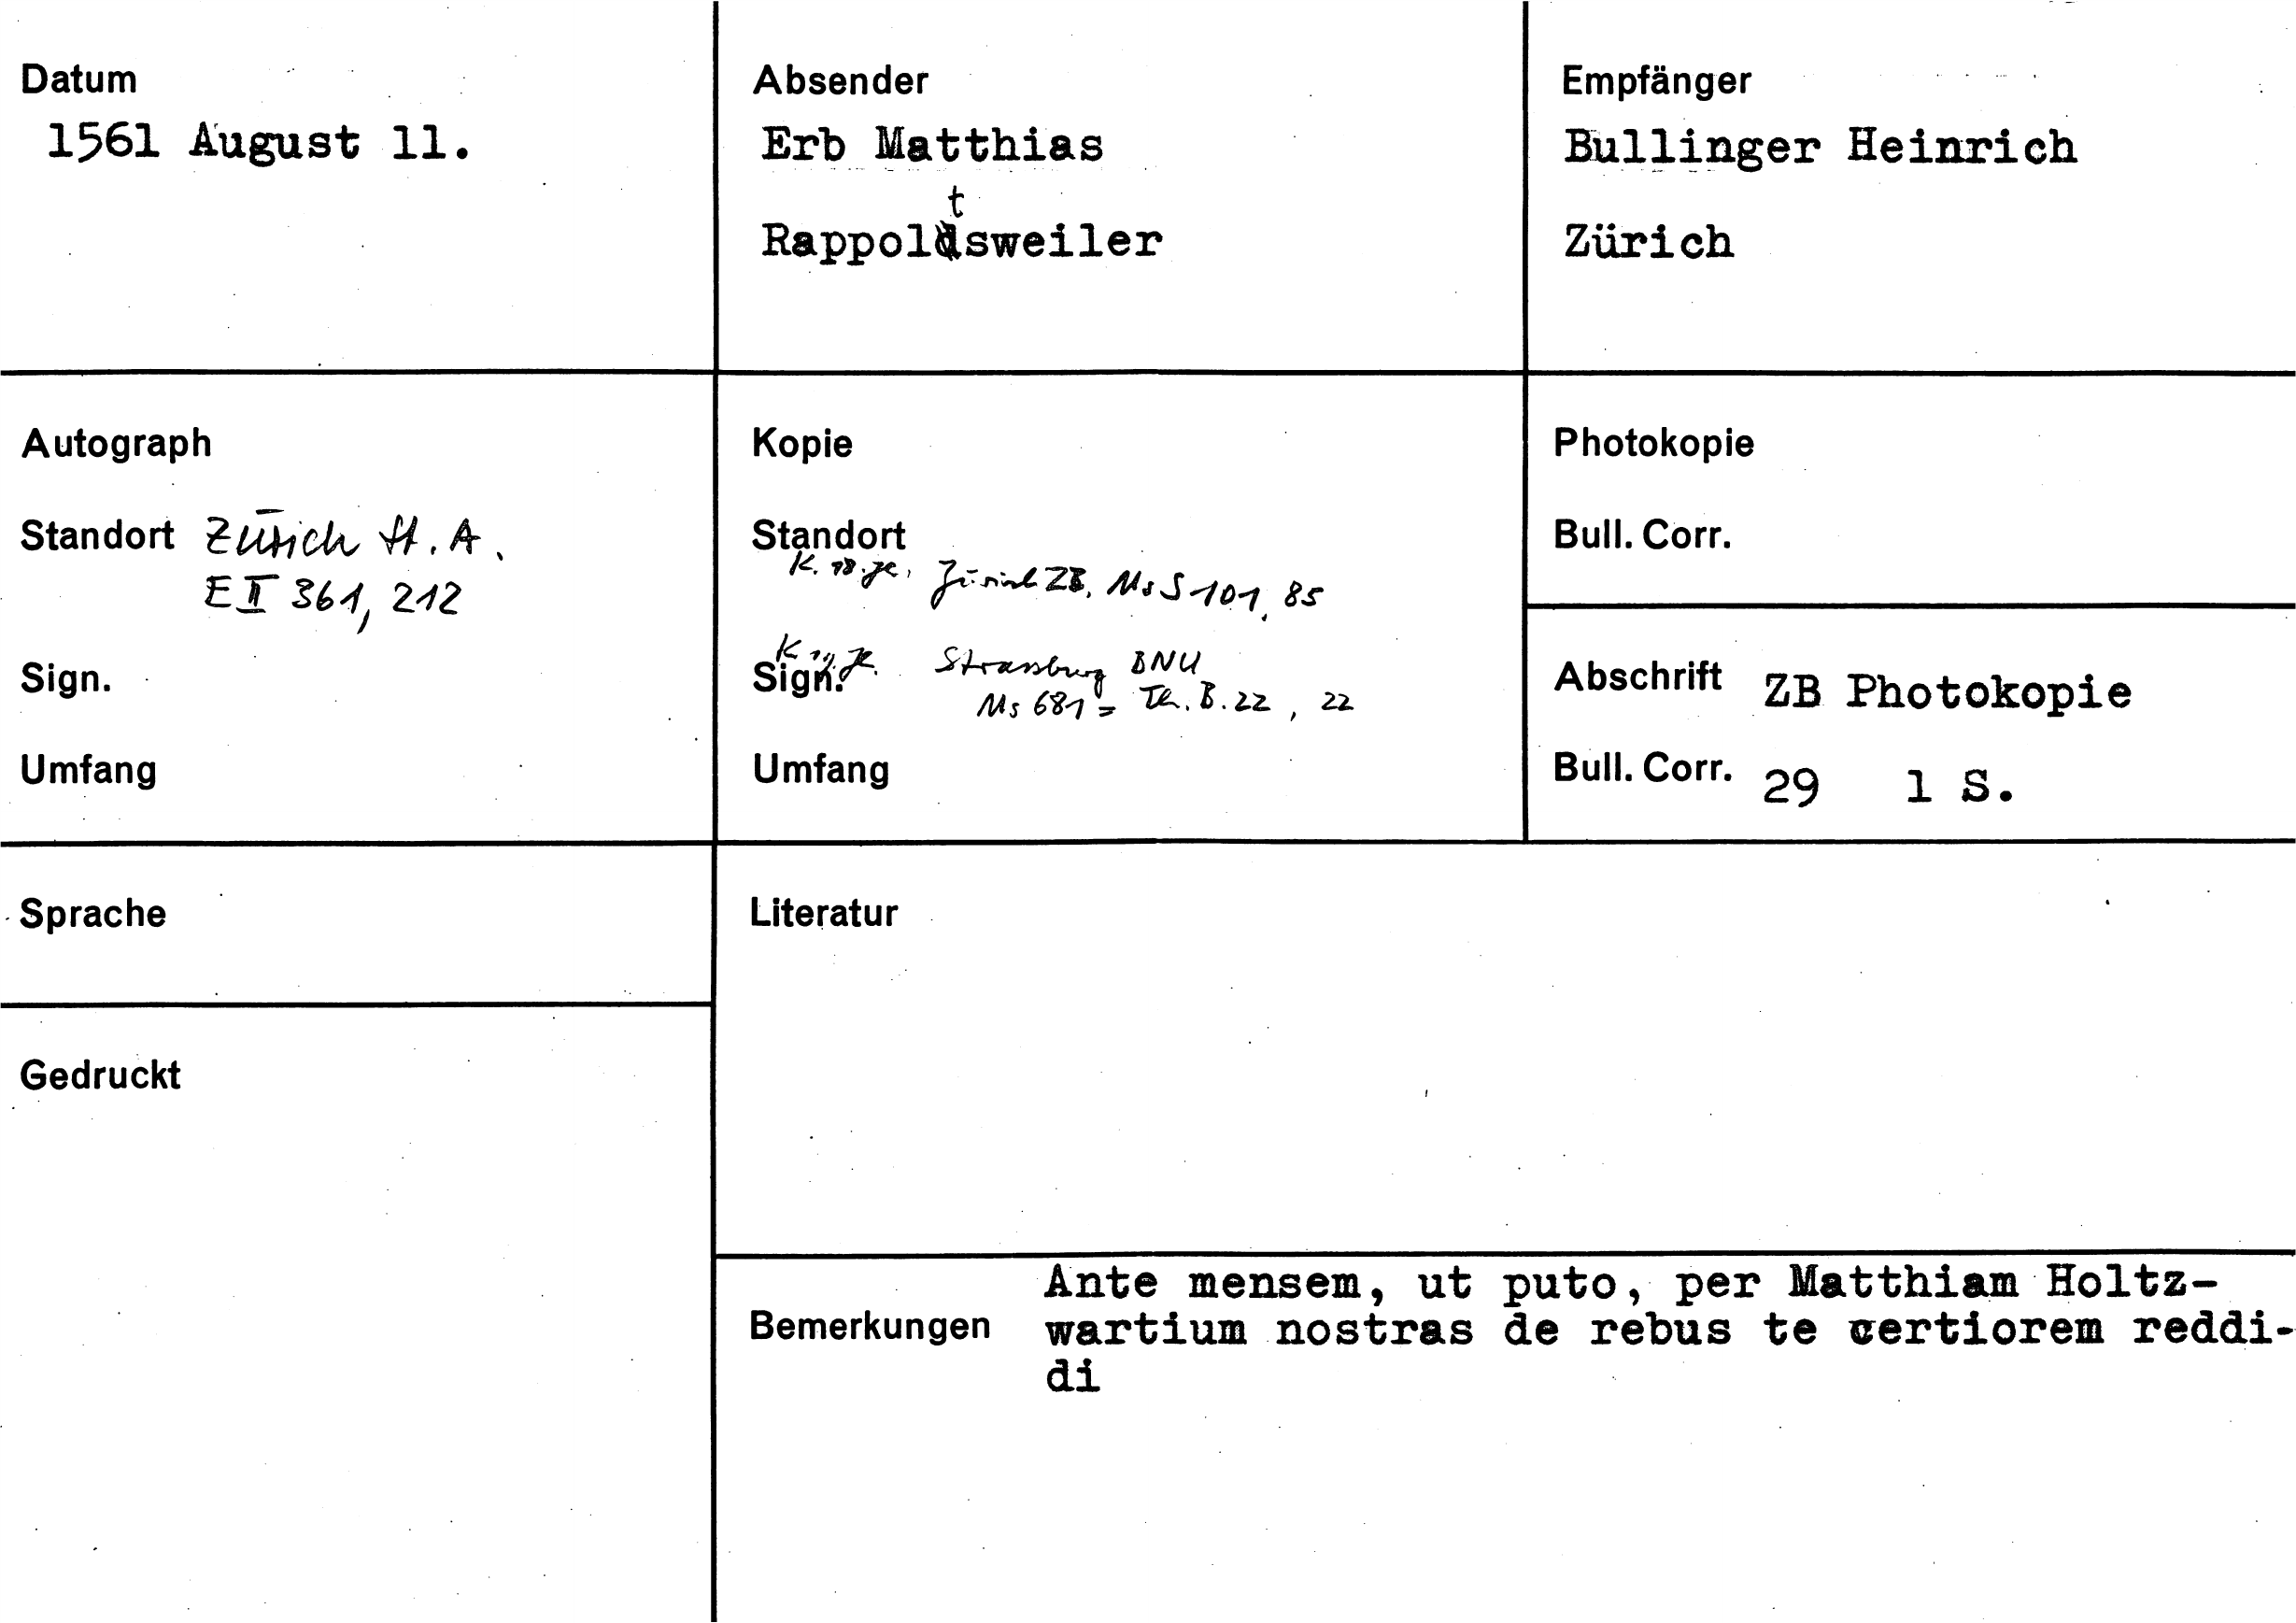 Datum
1561 August 11.
Absender
Erb Matthias
t
Rappoldsweiler
Empfänger
Bullinger Heinrich
Zürich
Autograph
Standort Zürich St. A.
E II 361, 212
Sign.
Umfang
Kopie
Standort
K. 18. Jh. Zürich ZB, Ms S 101, 85
K 17. Jh. Strassburg BNU
Sign.
Ms 681 = Th. B. 22, 22
Umfang
Photokopie
Bull. Corr.
Abschrift ZB Photokopie
Bull. Corr. 29 1 S.
Sprache
Literatur
Gedruckt
Bemerkungen
Ante mensem, ut puto, per Matthiam Holtz-
wartium nostras de rebus te certiorem reddi-
di